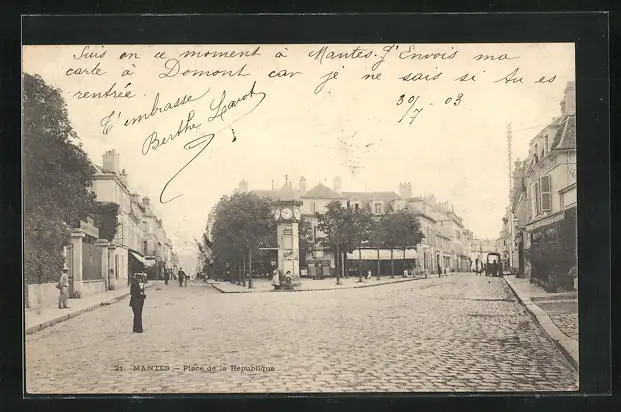 Suis en ce moment à Mantes. J'Envois ma
carte à Domont car je ne sais si tu es
rentrée.
T'embrasse
Berthe
30/7 03
21. MANTES – Place de la République